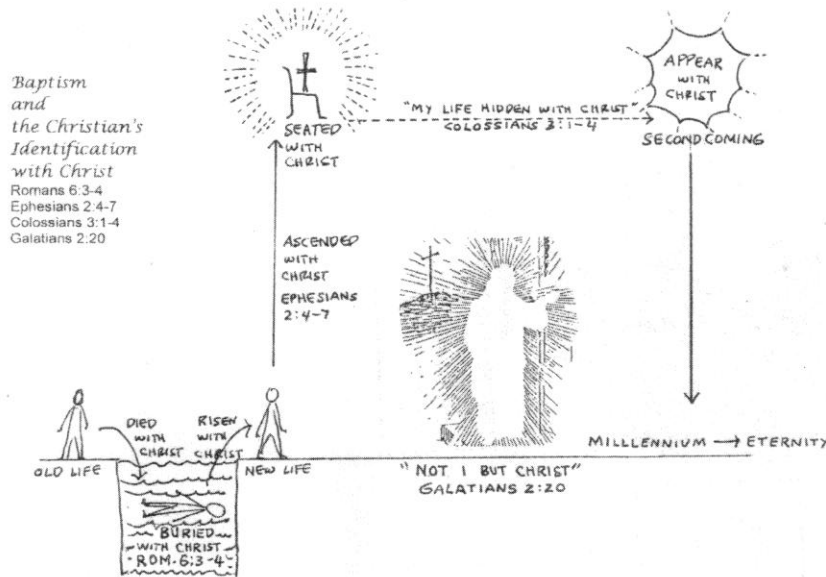 Baptism
and
the Christian's
Identification
with Christ
Romans 6:3-4
Ephesians 2:4-7
Colossians 3:1-4
Galatians 2:20
SEATED
WITH
CHRIST
"MY LIFE HIDDEN WITH CHRIST"
COLOSSIANS 3:1-4
APPEAR
WITH
CHRIST
SECOND COMING
ASCENDED
WITH
CHRIST
EPHESIANS
2:4-7
OLD LIFE
DIED
WITH
CHRIST
RISEN
WITH
CHRIST
NEW LIFE
BURIED
WITH CHRIST
ROM. 6:3-4
"NOT I BUT CHRIST"
GALATIANS 2:20
MILLLENNIUM → ETERNITY